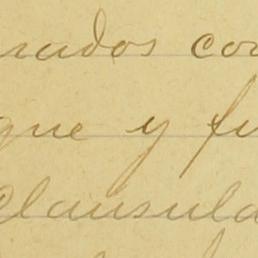 rados con
que y fu
Clausula